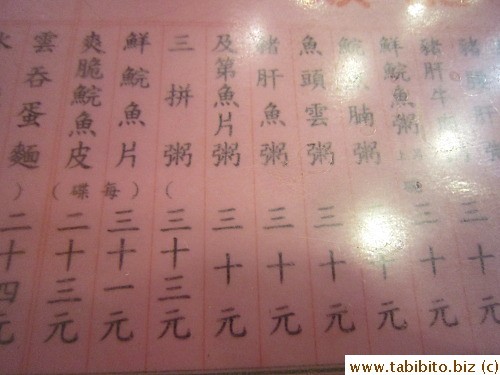 三十元
豬肝牛 三十元
鮮鯇魚粥 三十元
鯇魚腩粥 三十元
魚頭雲粥 三十元
豬肝魚粥 三十元
及第魚片粥 三十元
三拼粥 三十三元
鮮鯇魚片 三十一元
爽脆鯇魚皮 (每碟) 二十三元
雲吞蛋麵 二十四元
www.tabibito.biz (c)